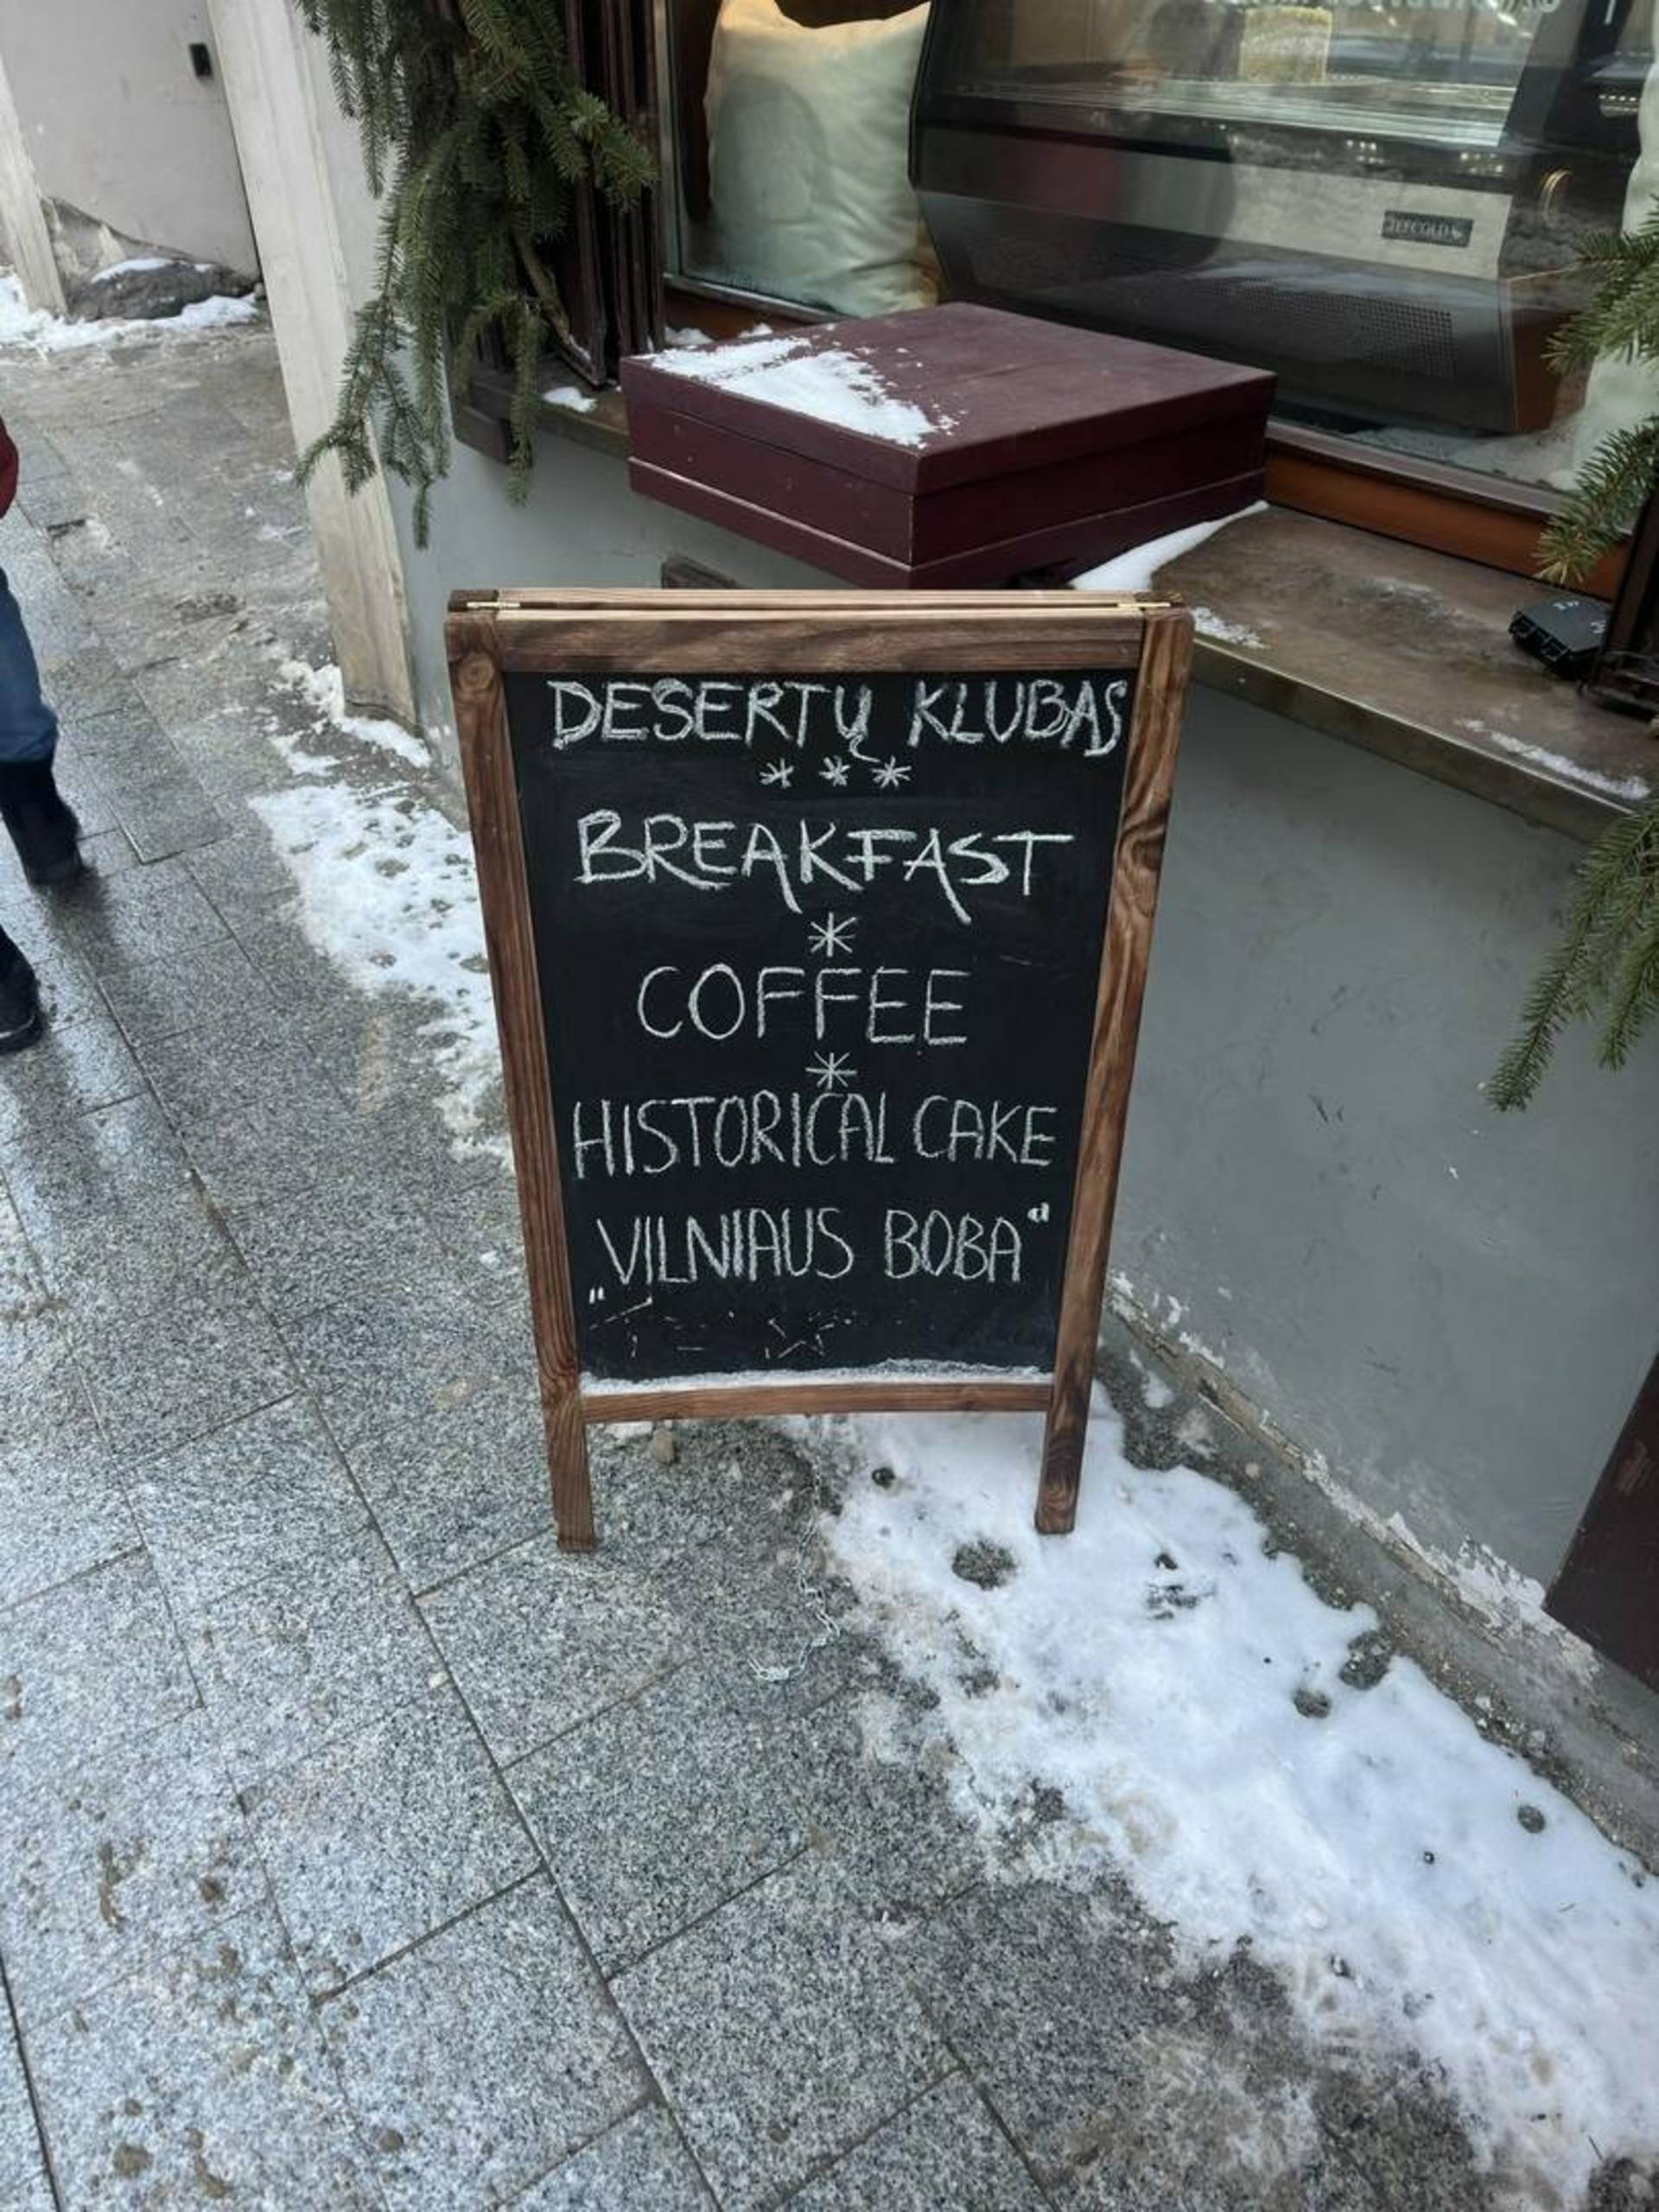 TEFCOLD
DESERTŲ KLUBAS
* * *
BREAKFAST
*
COFFEE
*
HISTORICAL CAKE
„VILNIAUS BOBA“